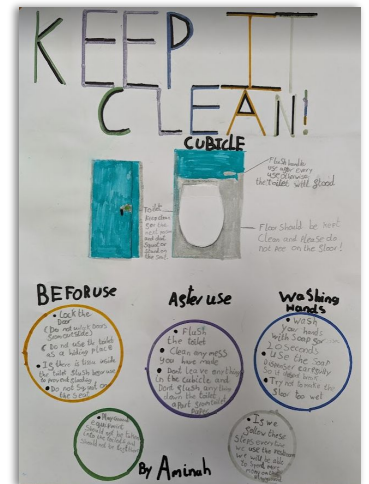 KEEP IT
CLEAN!
CUBICLE
Flush handle
use after every
use otherwise
the Toilet will flood
Toilet
Keep clean
for the
next person
and dont
squat or
stand on
the seat.
Floor should be kept
Clean and Please do
not pee on the floor!
BEFOR USE
• Lock the
Door
(Do not
(Do not use the toilet
as a hiding place
• If there is tissue inside
the toilet flush before use
to prevent flooding
• Do not squat on
the seat
After use
• Flush
the toilet
• Clean any mess
you have made
• Dont leave anything
in the cubicle and
Dont flush anything
down the toilet
apart from toilet
Paper
Washing
Hands
• Wash
your hands
with soap for
20 seconds
• Use the soap
carefully
so it dosnt
• Try not to make the
floor too wet
• Playground
equipment
should not be taken
into the toilets and
should not be
• If we
follow these
steps everytime
we use the
we will be able
to spend more
time on the
playground
By Aminah